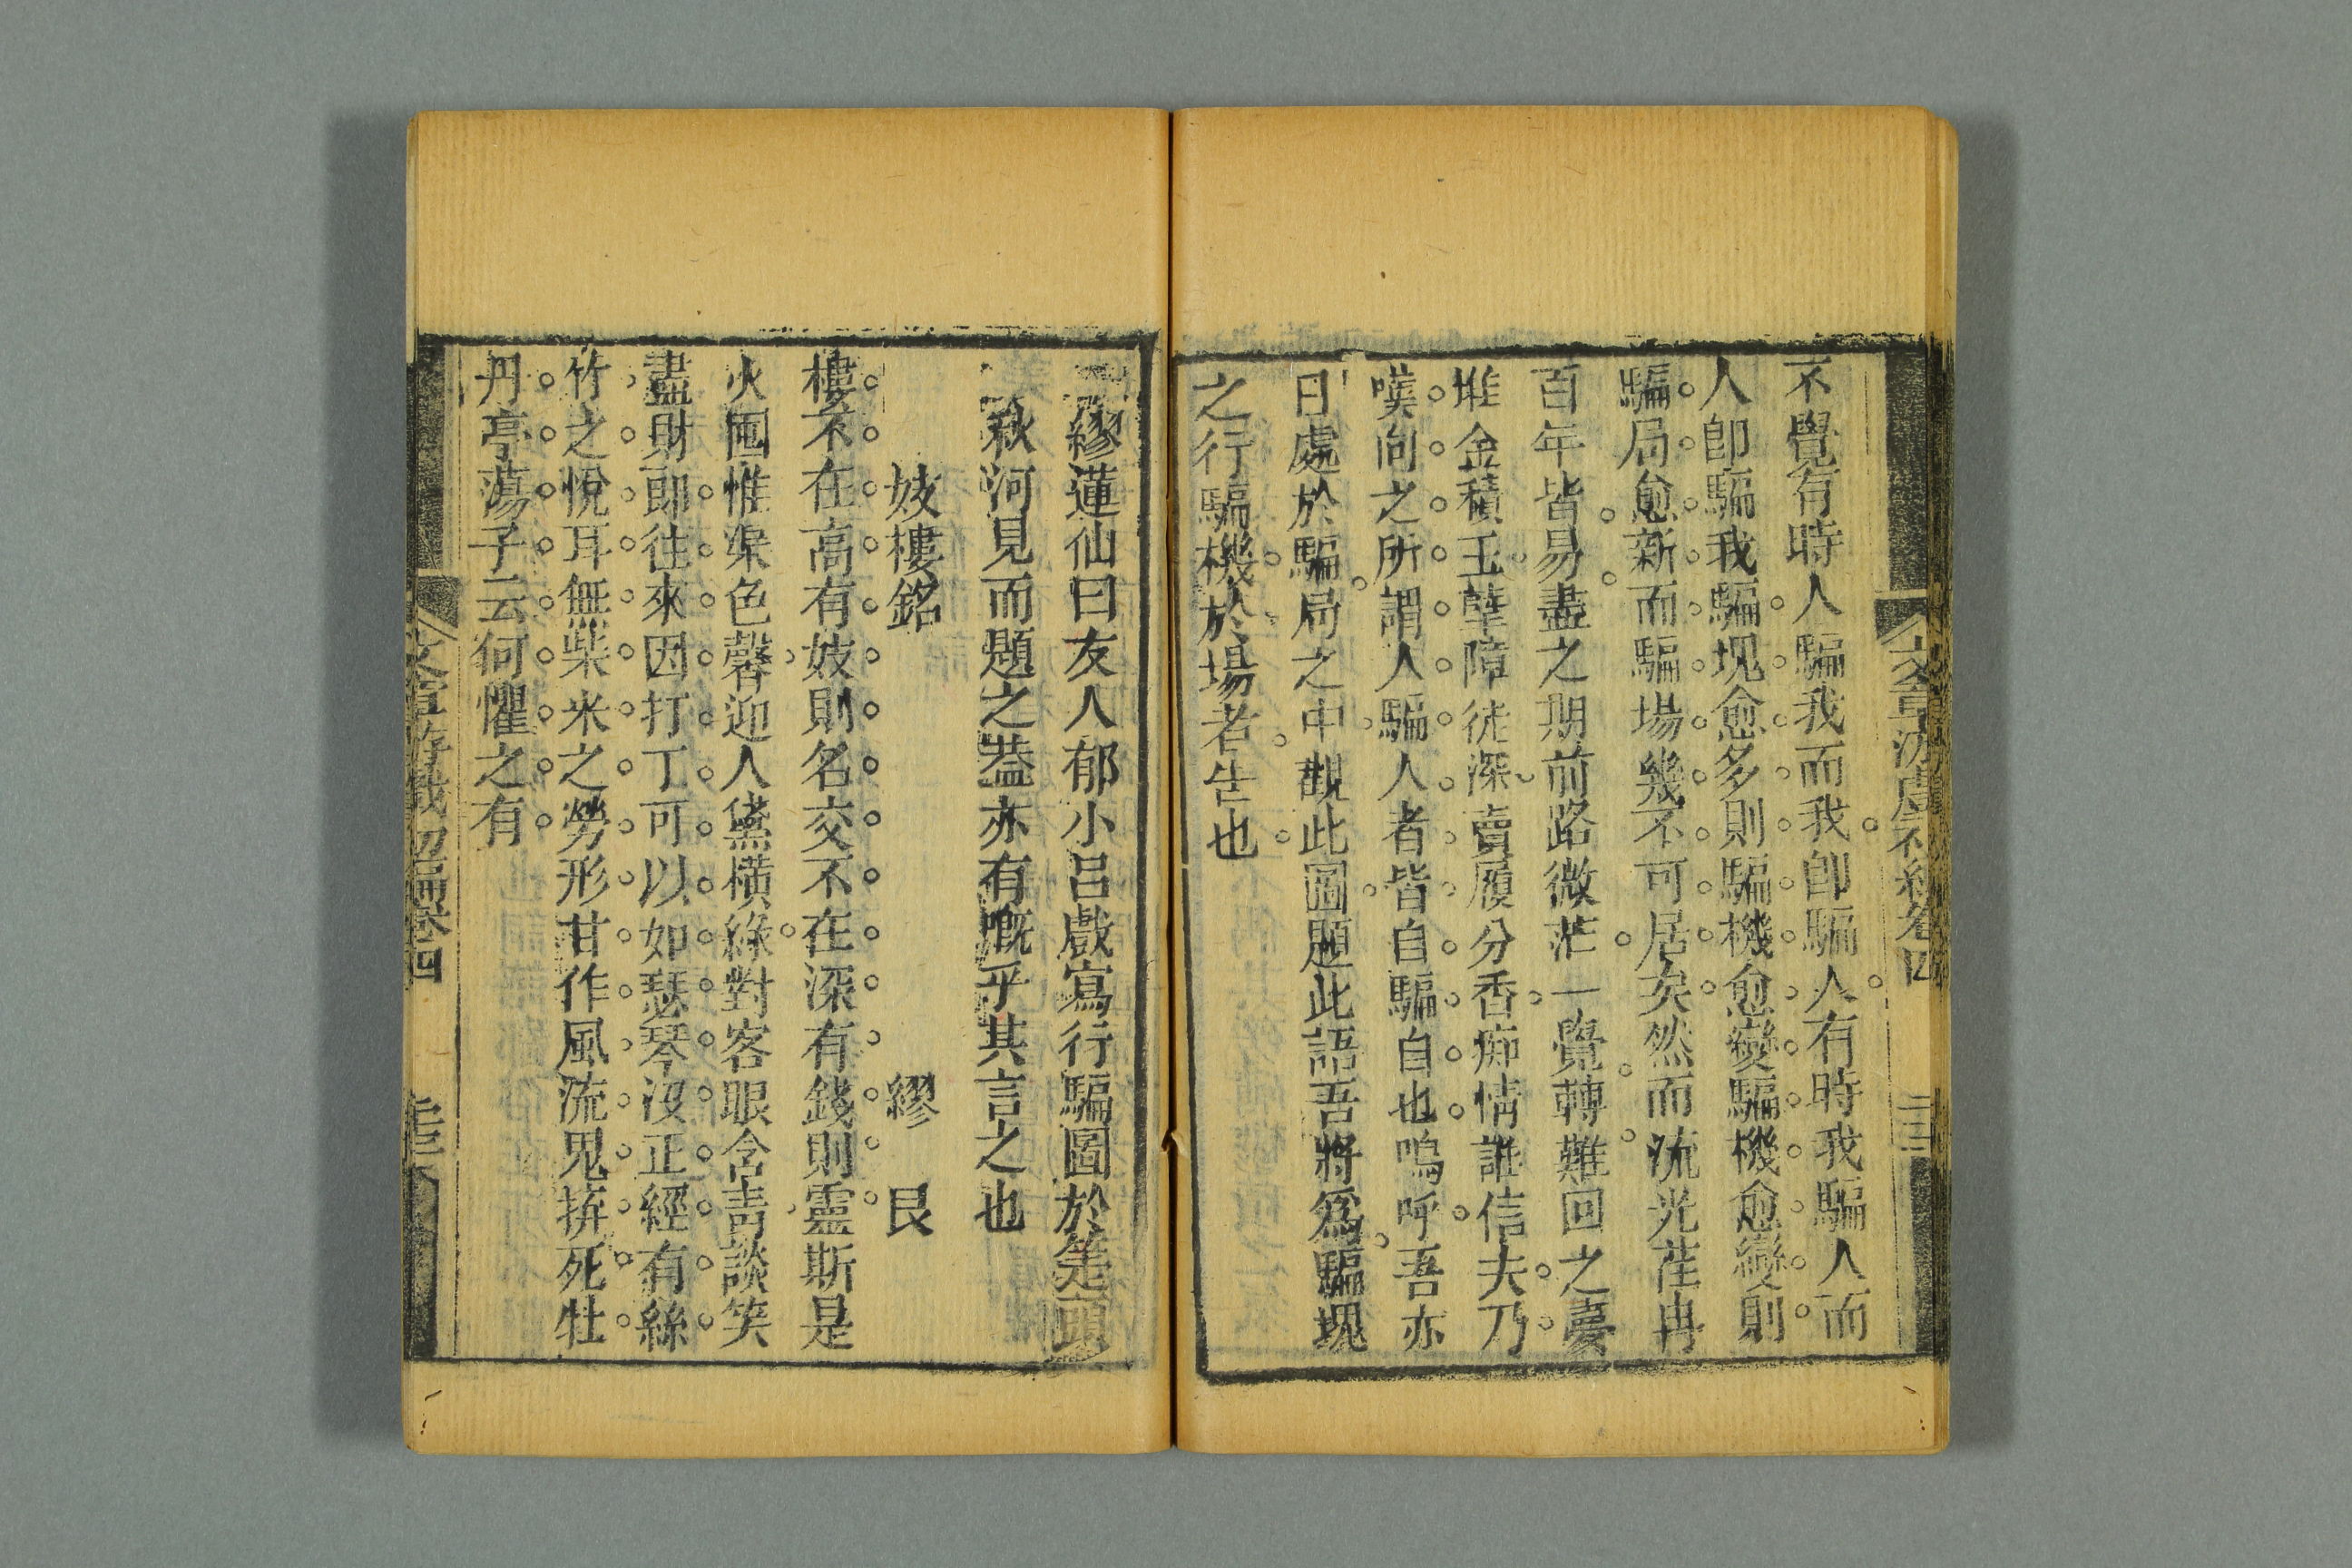 不覺有時人騙我而我卽騙人有時我騙人而
人卽騙我騙堁愈多則騙機愈變騙機愈變則
騙局愈新而騙場幾不可居矣然而流光荏冉
百年皆易盡之期前路微茫一覺轉難回之夢
堆金積玉孽障徒深賣履分香痴情誰信夫乃
嘆向之所謂人騙人者皆自騙自也嗚呼吾亦
日處於騙局之中觀此圖題此語吾將爲騙堁
之行騙機於場者告也
繆蓮仙曰友人郁小呂戲寫行騙圖於箑頭
秋河見而題之葢亦有慨乎其言之也
妓樓銘 繆艮
樓不在高有妓則名交不在深有錢則靈斯是
火囤惟渠色馨迎人黛橫綠對客眼含青談笑
盡財郎往來因打丁可以如瑟琴沒正經有絲
竹之悅耳無柴米之勞形甘作風流鬼拚死牡
丹亭蕩子云何懼之有
文章游戲初編卷四